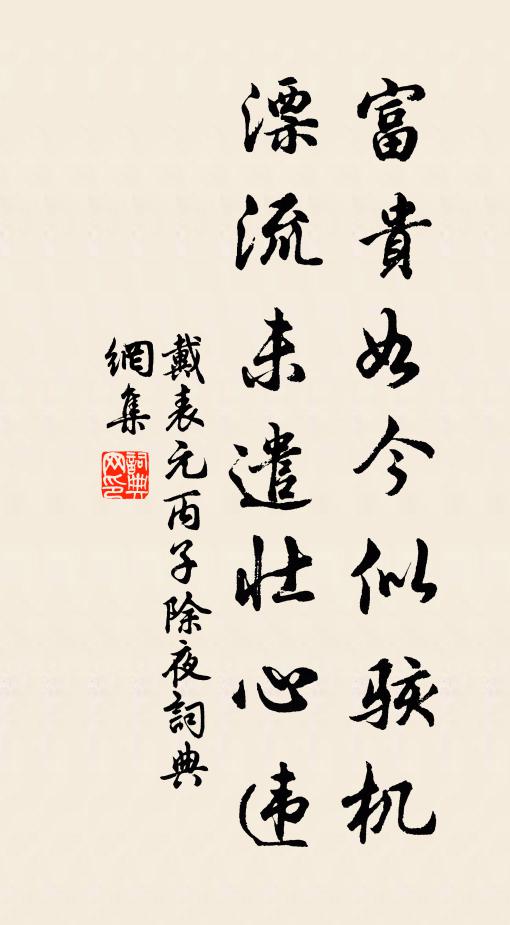 富貴如今似駭机
漂流未遣壮心违
戴表元丙子除夜詞典
網集
詞典網印